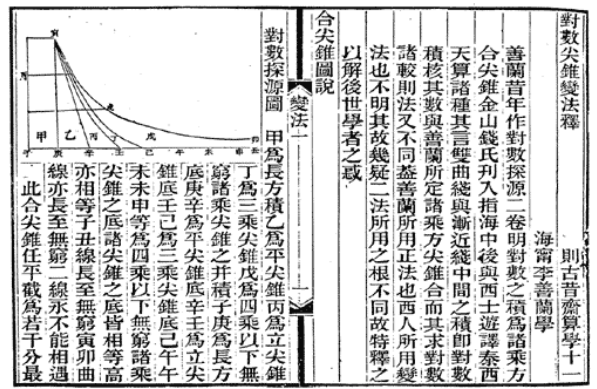 對數尖錐變法釋
則古昔齋算學十一
海甯李善蘭學
善蘭昔年作對數探源二卷明對數之積爲諸乘方
合尖錐金山錢氏刊入指海中後與西士遊譯泰西
天算諸種其言雙曲綫與漸近綫中間之積卽對數
積核其數與善蘭所定諸乘方尖錐合而其求對數
諸較則法又不同蓋善蘭所用正法也西人所用變
法也不明其故幾疑二法所用之根不同故特釋之
以解後世學者之惑
合尖錐圖說
變法一
對數探源圖 甲爲長方積乙爲平尖錐丙爲立尖錐
丁爲三乘尖錐戊爲四乘以下無
窮諸乘尖錐之并積子庚爲長方
底庚辛爲平尖錐底辛壬爲立尖
錐底壬己爲三乘尖錐底己午午
未未申等爲四乘以下無窮諸乘
尖錐之底諸尖錐之底皆相等高
亦相等子丑線長至無窮寅卯曲
線亦長至無窮二線永不能相遇
此合尖錐任平截爲若干分最
寅
甲
乙
丙
丁
戊